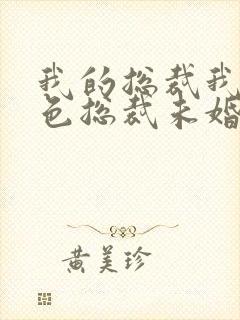 我的总裁我
色总裁未婚
黄美珍